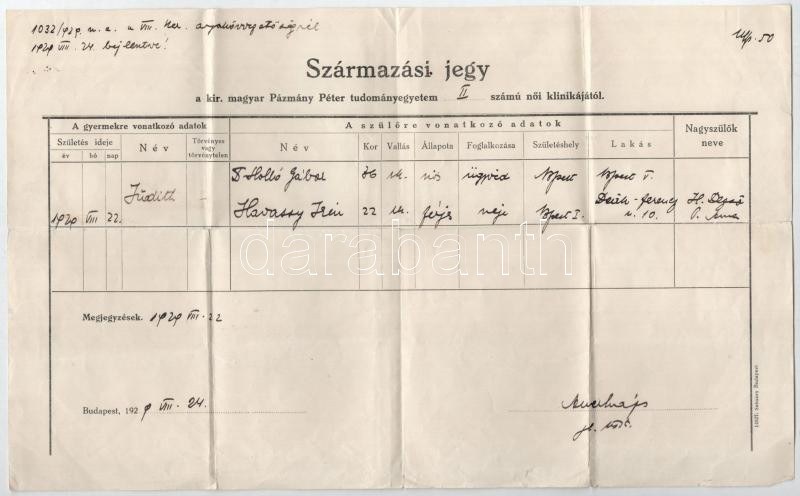 1032/929. a VIII. ker. anyakönyvvezetőségnél
1929 VIII. 24. bejelentve!
50
Származási jegy
a kir. magyar Pázmány Péter tudományegyetem II számú női klinikájától.
A gyermekre vonatkozó adatok A szülőre vonatkozó adatok Nagyszülők neve
Születés ideje Név Törvényes vagy törvénytelen Név Kor Vallás Állapota Foglalkozása Születéshely Lakás
év hó nap
Dr Holló Gábor 36 nős ügyvéd Bpest Bpest V.
1929 VIII 22. Judith – Havassy Irén 22 férj. neje Bpest I. Deák-Ferenc u. 10. H. Dezső
darabanth
Megjegyzések. 1929 VIII. 22
Budapest, 1929 VIII. 24.